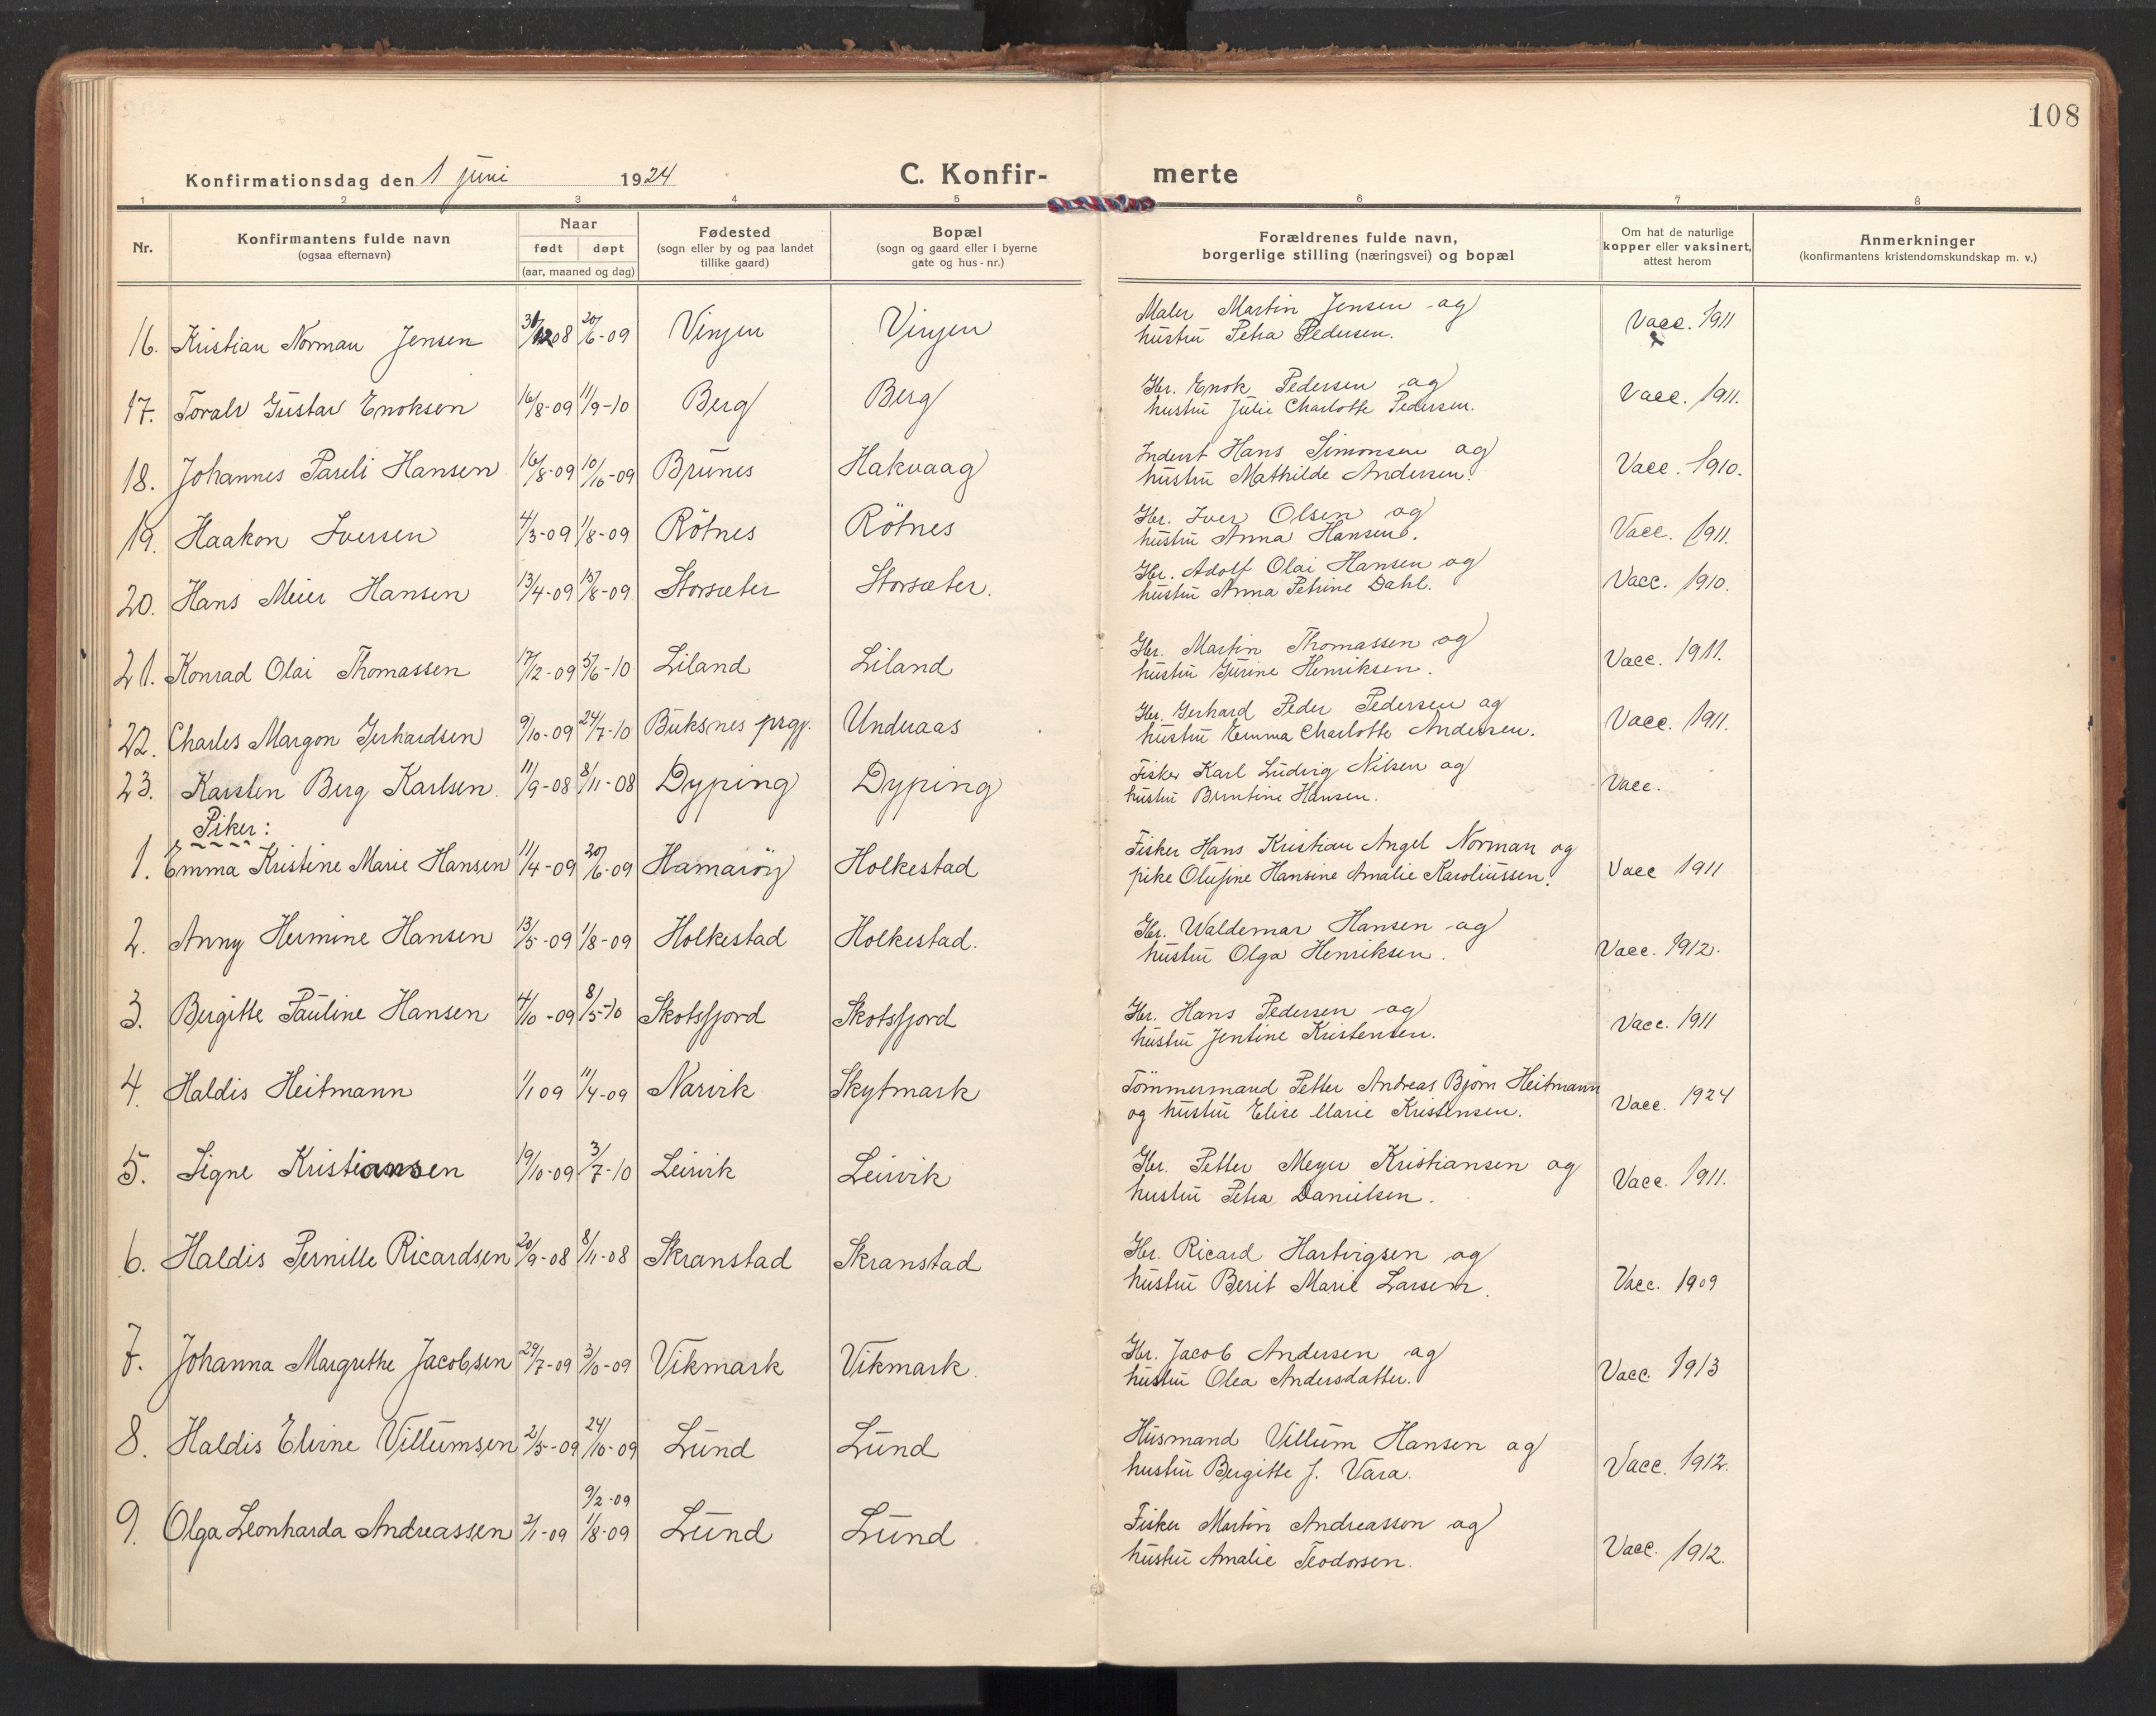 108
Konfirmationsdag den 1 juni 1924
C. Konfir- merte
1 2 3 4 5 6 7 8
Nr.
Konfirmantens fulde navn
(ogsaa efternavn)
Naar
født døpt
(aar, maaned og dag)
Fødested
(sogn eller by og paa landet
tillike gaard)
Bopæl
(sogn og gaard eller i byerne
gate og hus-nr.)
Forældrenes fulde navn,
borgerlige stilling (næringsvei) og bopæl
Om hat de naturlige
kopper eller vaksinert,
attest herom
Anmerkninger
(konfirmantens kristendomskundskap m. v.)
16. Kristian Norman Jensen 31/12 08 20/6-09 Vinjen Vinjen Maler Martin Jensen og
hustru Petra Pedersen. Vacc. 1911
17. Toralv Gustav Enoksen 16/8-09 11/9-10 Berg Berg Gbr. Enok Pedersen og
hustru Julie Charlotte Pedersen. Vacc. 1911.
18. Johannes Pareli Hansen 16/8-09 10/10-09 Brunes Hakvaag Inderst Hans Simonsen og
hustru Mathilde Andersen. Vacc. 1910.
19. Haakon Iversen 4/3-09 1/8-09 Rötnes Rötnes Gbr. Iver Olsen og
hustru Anna Hansen. Vacc. 1911.
20. Hans Meier Hansen 13/4-09 15/8-09 Storsæter Storsæter. Gbr. Adolf Olai Hansen og
hustru Anna Petrine Dahl. Vacc. 1910.
21. Konrad Olai Thomassen 17/12-09 5/6-10 Liland Liland Gbr. Martin Thomassen og
hustru Jurine Henriksen. Vacc. 1911.
22. Charles Margon Gerhardsen 9/10-09 24/7-10 Buksnes prgj. Undvaas Gbr. Gerhard Peder Pedersen og
hustru Emma Charlotte Andersen. Vacc. 1911.
23. Karsten Berg Karlsen. 11/9-08 8/11-08 Dyping Dyping Fisker Karl Ludvig Nilsen og
hustru Berntine Hansen. Vacc.
Piker:
1. Emma Kristine Marie Hansen 11/4-09 20/6-09 Hamaröy Holkestad Fisker Hans Kristian Angel Norman og
pike Olufine Hansine Amalie Karoliussen. Vacc 1911
2. Anny Hermine Hansen 13/5-09 1/8-09 Holkestad Holkestad. Gbr. Waldemar Hansen og
hustru Olga Henriksen. Vacc. 1912.
3. Bergitte Pauline Hansen 4/10-09 8/5-10 Skotsfjord Skotsfjord Gbr. Hans Pedersen og
hustru Jentine Kristensen. Vacc. 1911
4. Haldis Heitmann 1/1 09 11/4-09 Narvik Skytmark Tömmermand Petter Andreas Björn Heitmann
og hustru Elise Marie Kristensen. Vacc. 1924
5. Signe Kristiansen 19/10-09 3/7-10 Leirvik Leirvik Gbr. Petter Meyer Kristiansen og
hustru Petra Danielsen. Vacc. 1911.
6. Haldis Pernille Ricardsen 20/9-08 8/11-08 Skranstad Skranstad Gbr. Ricard Hartvigsen og
hustru Berit Marie Larsen. Vacc. 1909
7. Johanna Margrethe Jacobsen 29/7-09 3/10-09 Vikmark Vikmark. Gbr. Jacob Andersen og
hustru Olea Andersdatter. Vacc 1913
8. Haldis Elvine Villumsen 2/5-09 24/10-09 Lund Lund Husmand Villum Hansen og
hustru Bergitte J. Vara. Vacc. 1912.
9/2-09
9. Olga Leonharda Andreassen 2/1-09 1/8-09 Lund Lund Fisker Martin Andreassen og
hustru Amalie Teodorsen. Vacc. 1912.